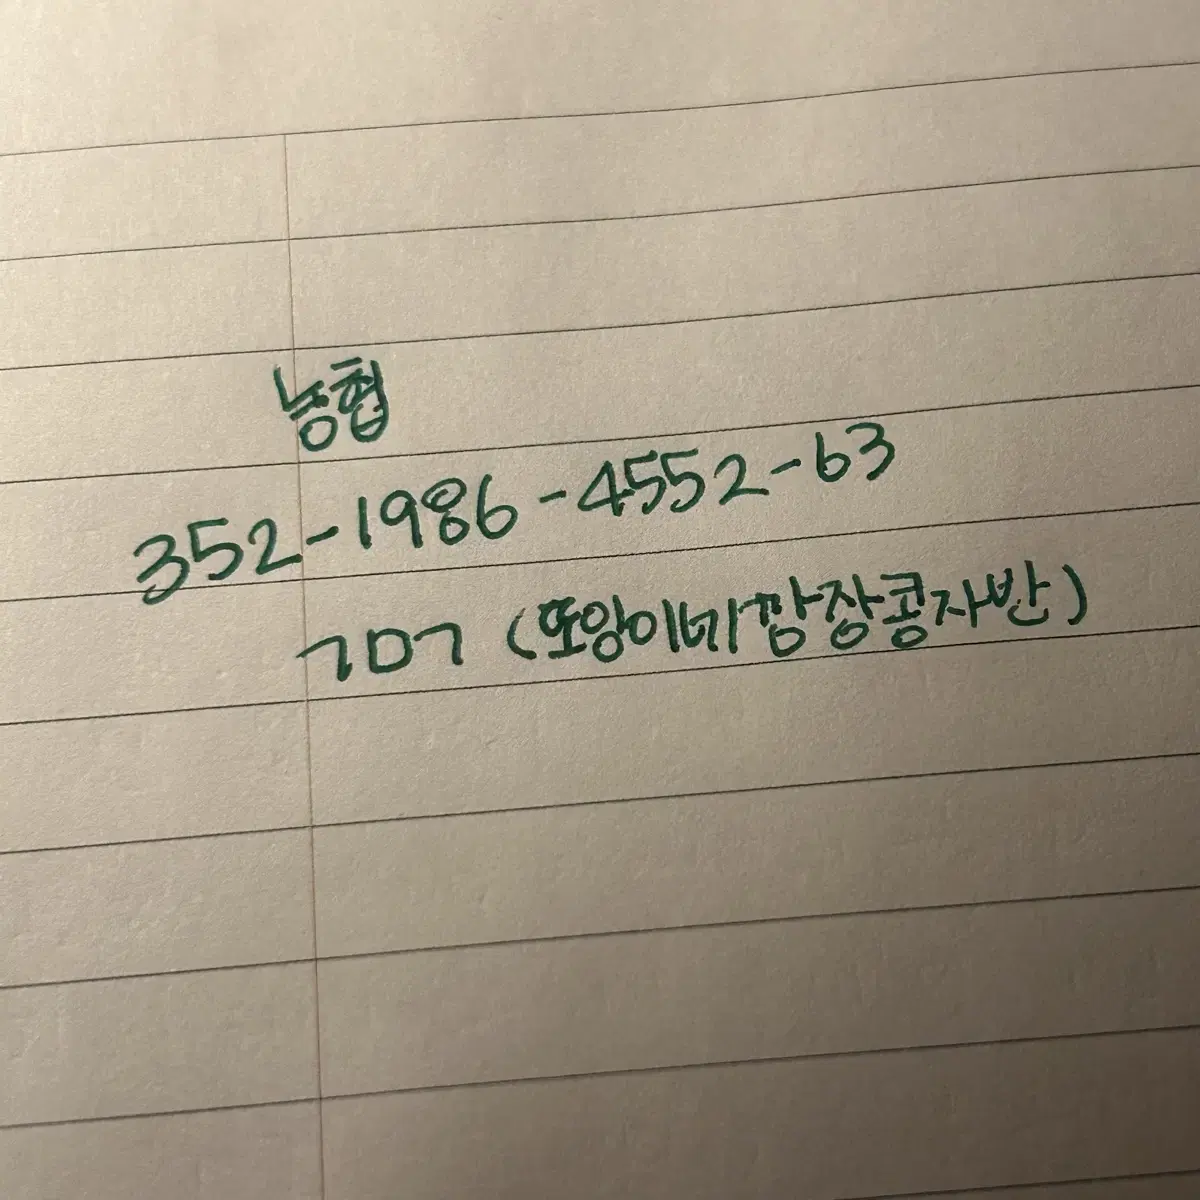 농협
352-1986-4552-63
ㄱㅁㄱ (또앙이네깜장콩자반)